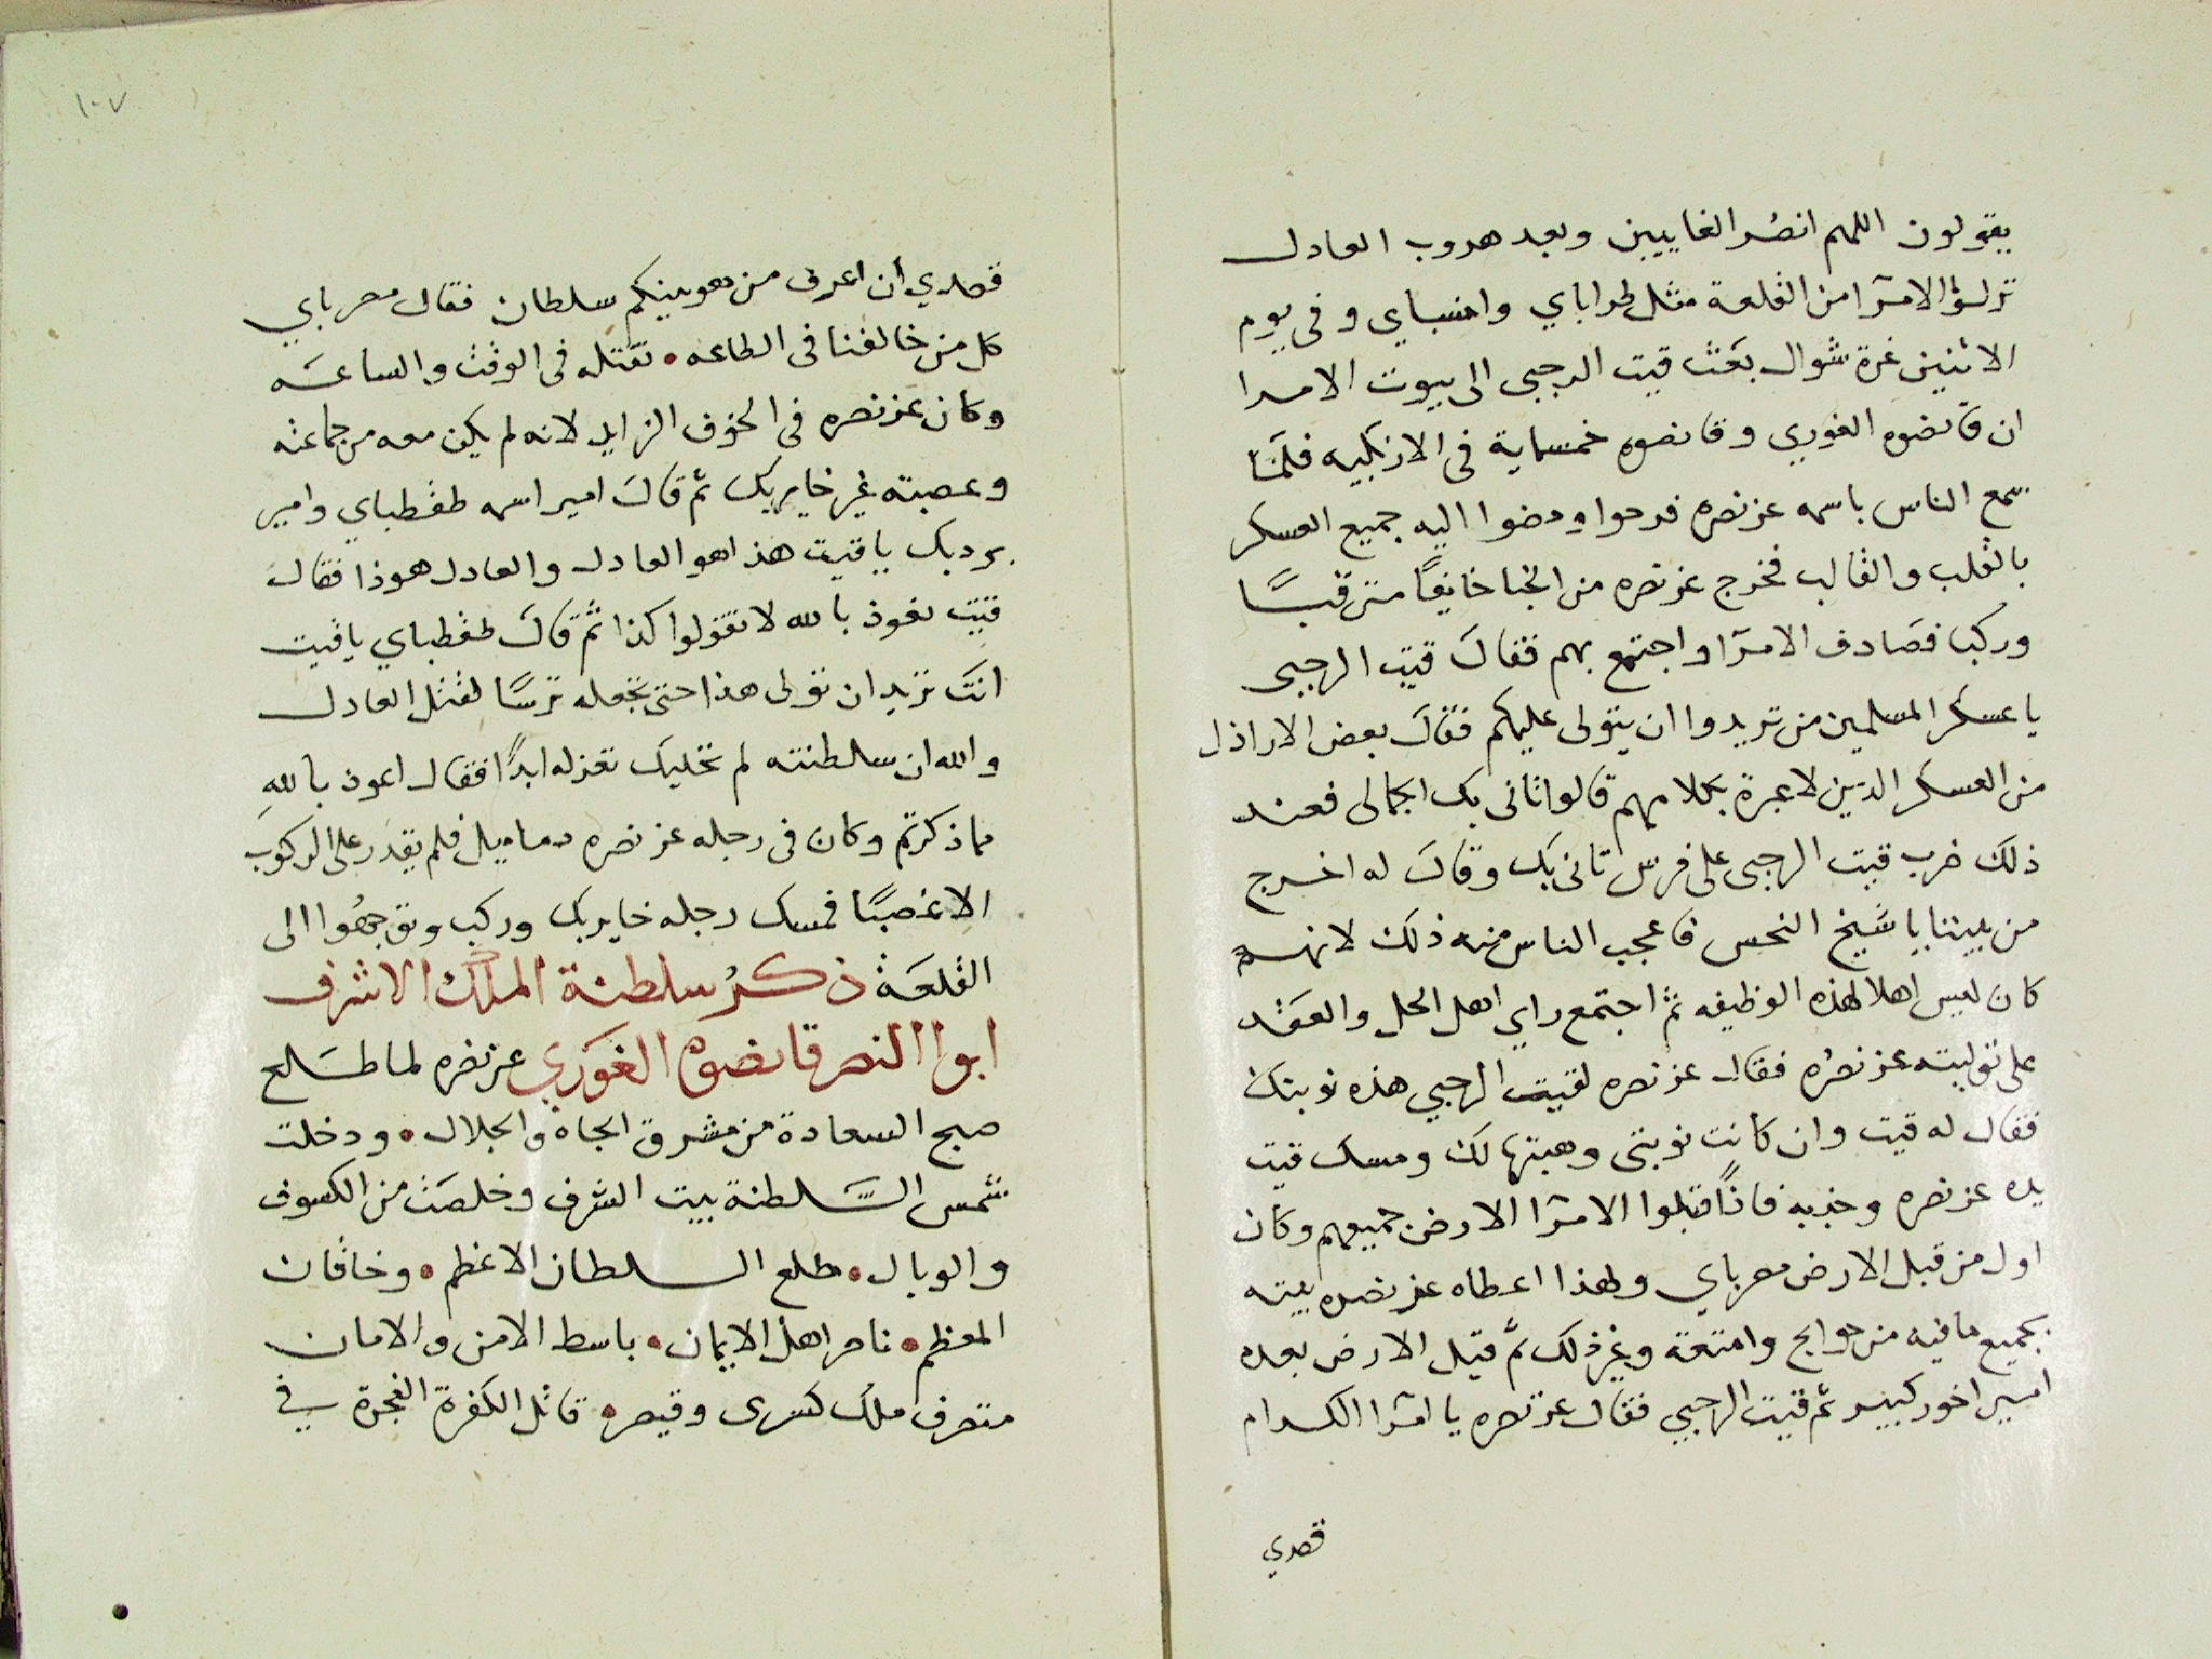 يقولون اللهم انصُر الغايبين وبعد هروب العادل
نزلوا الامرآ من القلعة مثل طراباي وانسباي وفى يوم
الاثنين غرة شوال بعَث قيت الرجبى الى بيوت الامرا
ان قانصوه الغوري وقانصوه خمسماية فى الازبكيه فلمَا
سمع الناس باسمه عز نصره فرحوا ومضوا اليه جميع العسكر
بالقلب والقالب فخرج عز نصره من الخبا خايفًا مترقبًا
وركبا فصَادف الامرآ واجتمع بهم فقال قيت الرجبى
يا عسكر المسلمين من تريدوا ان يتولى عليكم فقال بعض الاراذل
من العسكر الذين لا عبرة بكلامهم قالوا ثانى بك الجمالى فعند
ذلك ضرب قيت الرجبى على فرس تانى بك وقال له اخرج
من بيننا يا شيخ النحس فاعجب الناس منه ذلك لانهم
كان ليس اهلا لهذه الوظيفه ثم اجتمع راي اهل الحل والعقد
على توليته عز نصُره فقال عز نصره لقيت الرجبي هذه نوبتك
فقال له قيت وان كانت نوبتى وهبتها لك ومسك قيت
يده عز نصره وجذبه فاذًا قبلوا الامرآ الارض جميعهم وكان
اول من قبل الارض مصرباي ولهذا اعطاه عز نصره بيته
بجميع ما فيه من حوايج وامتعة وغير ذلك ثم قبل الارض بعده
امير اخور كبير ثم قيت الرجبي فقال عز نصره يا امرا الكرام
قصدي
١٠٧
قصدي أن اعرف من هو بينكم سلطان فقال مصرباي
كل من خالفنا فى الطاعه • نقتله فى الوقت والساعَه
وكان عز نصره فى الخوف الزايد لانه لم يكن معه من جماعته
وعصبته غير خايربك ثم قال امير اسمه طقطباي وامير
بردبك يا قيت هذا هو العادل والعادل هو ذا فقال
قيت نعوذ بالله لا تقولوا كذا ثم قال طقطباي يا قيت
انت تريد ان تولى هذا حتى تجعله ترسًا لقتل العادل
والله ان سلطنته لم نخليك تعزله ابدًا فقال اعوذ باللهِ
مما ذكرتم وكان فى رجله عز نصره دماميل فلم يقدر على الركوب
الا غصبًا فمسك رجله خايربك وركب وتوجهُوا الى
القلعَة ذكرُ سلطنة الملك الاشرف
ابوا النصر قانصوه الغوري عز نصره لما طلع
صبح السعادة من مشرق الجاه والجلال • ودخلت
شمس السَّلطنة بيت الشرف وخلصَت من الكسوف
والوبال • طلع السلطان الاعظم • وخاقان
المعظم • ناصر اهل الايمان • باسط الامن والامان
متصرف ملك كسرى وقيصر • قاتل الكفرة الفجرة في